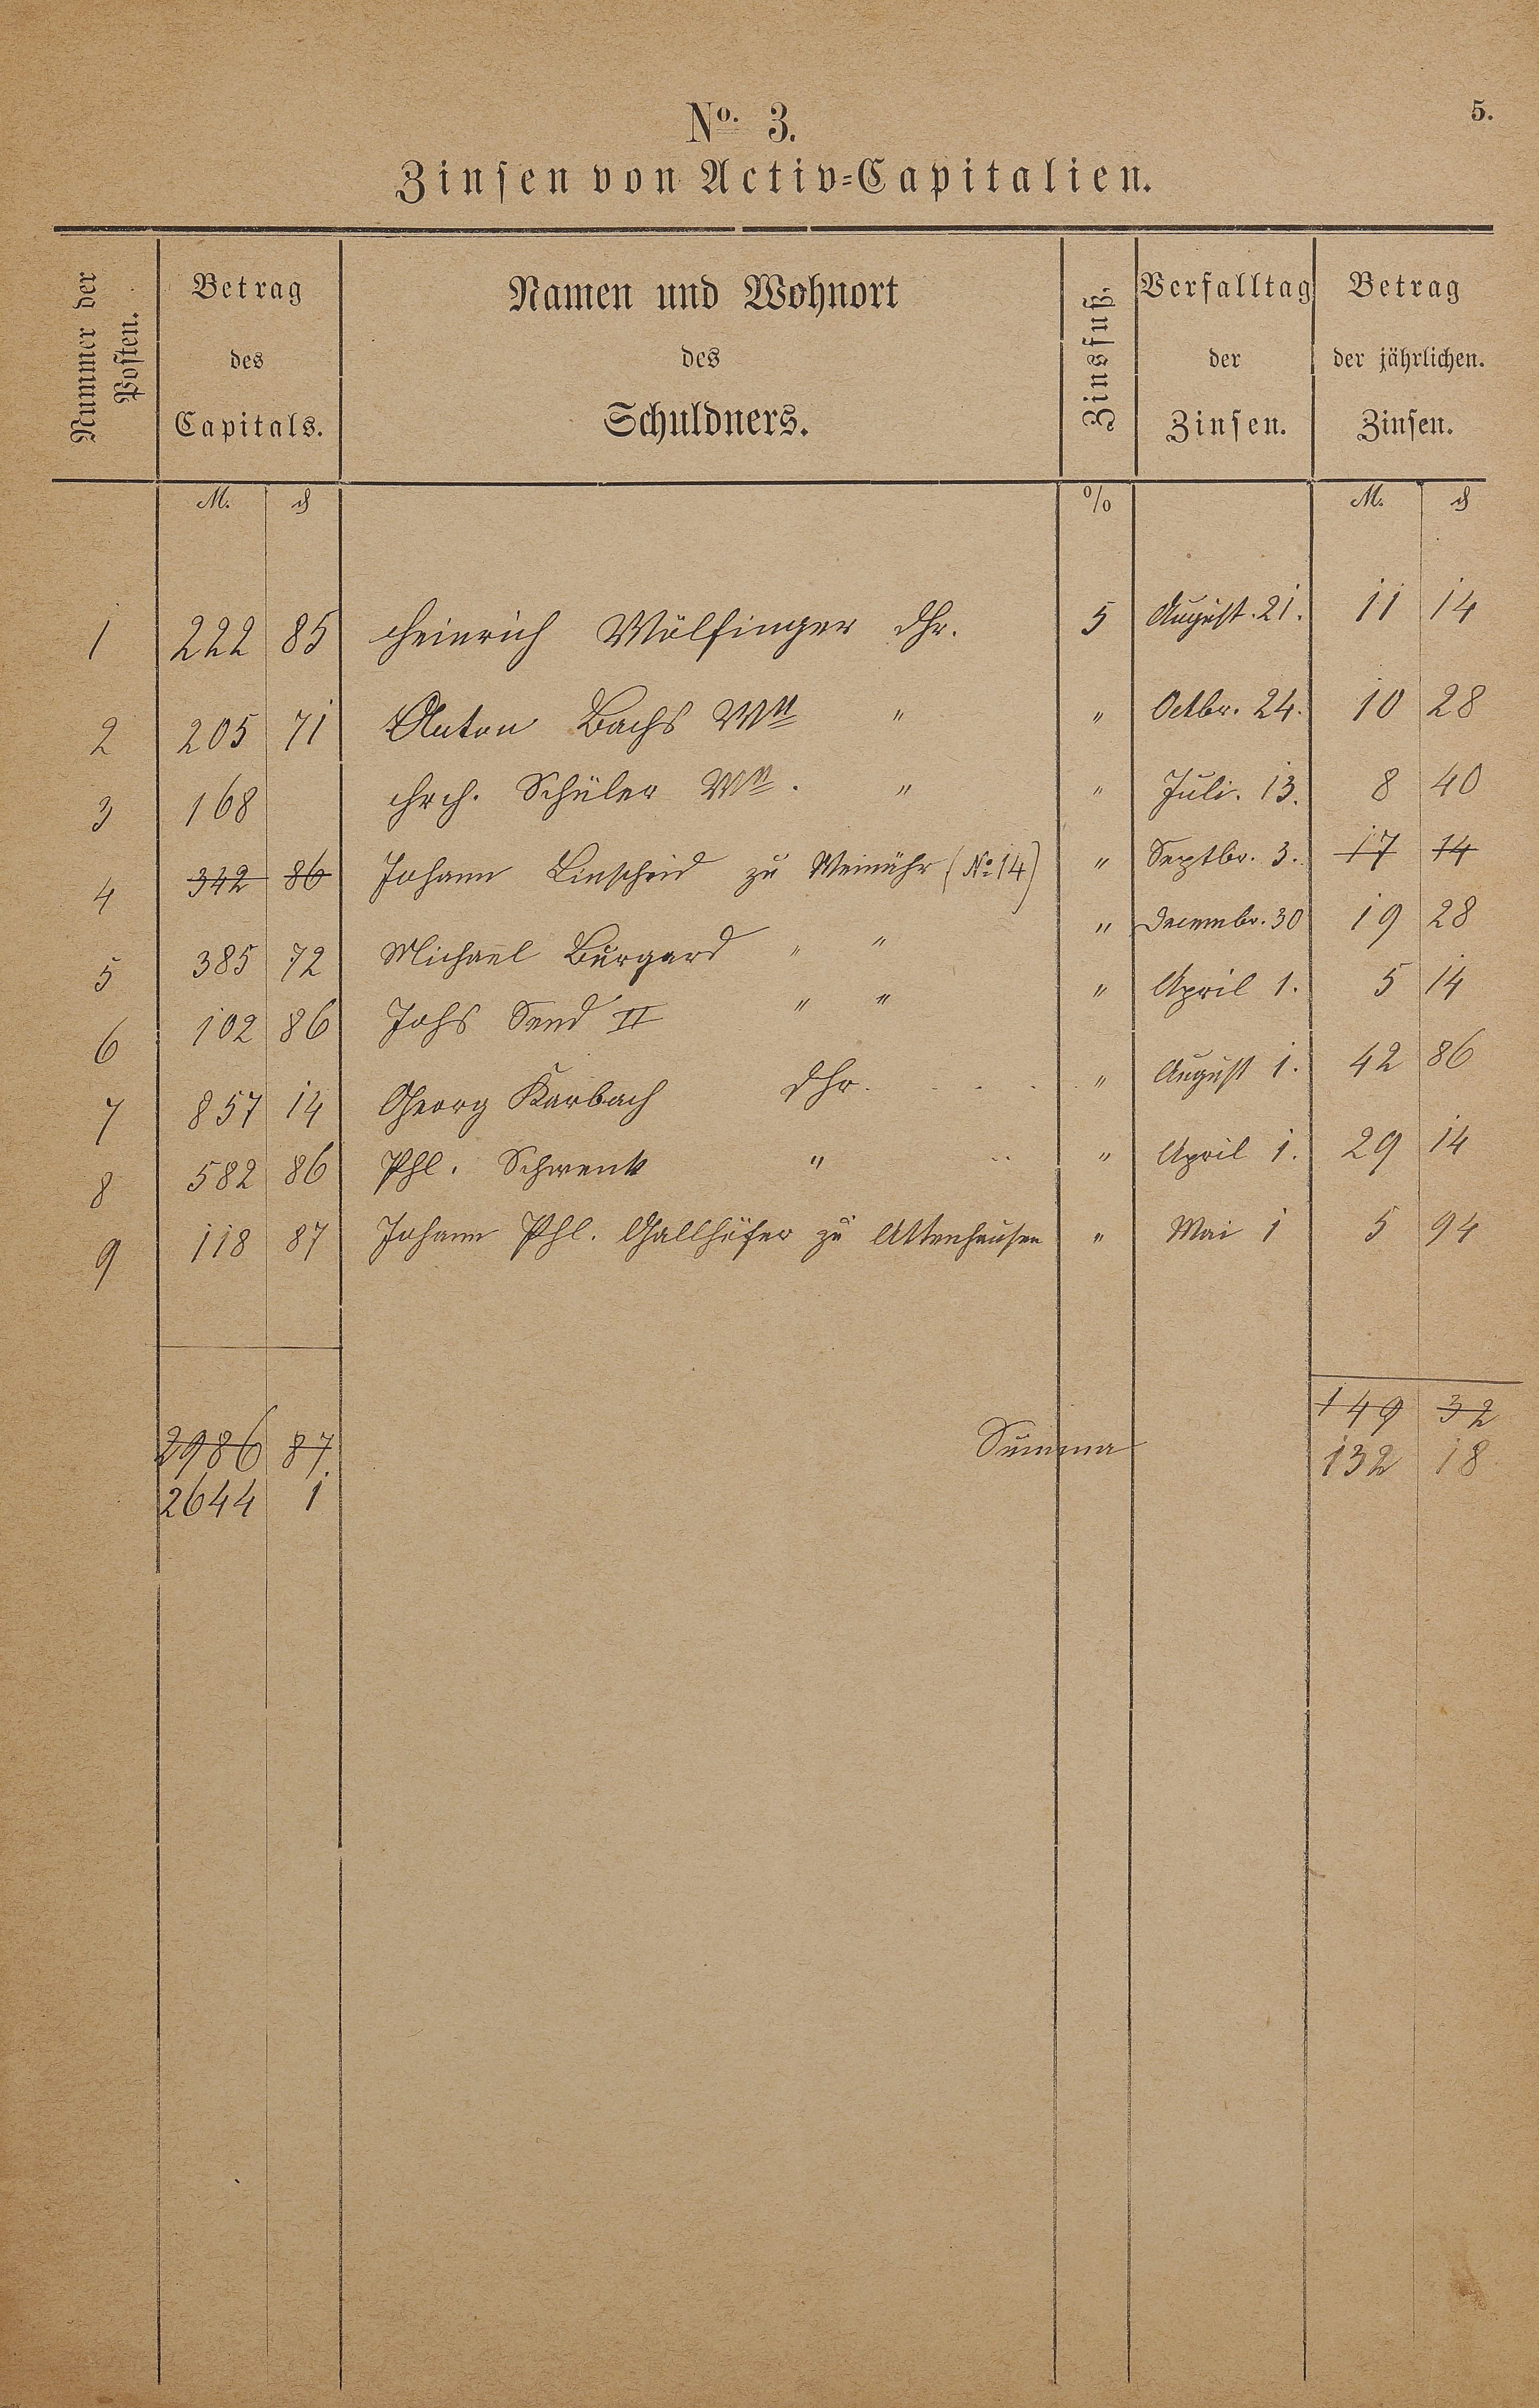 No. 3.
5.
Zinsen von Activ=Capitalien.
Nummer der Posten.
Betrag des Capitals.
Namen und Wohnort des Schuldners.
Zinsfuß.
Verfalltag der Zinsen.
Betrag der jährlichen. Zinsen.
M. ₰ % M. ₰
1 222 85 Heinrich Wölfinger dhr. 5 August. 21. 11 14
2 205 71 Anton Bachs Ww " " Octbr. 24. 10 28
3 168 Hrch. Schüler Ww. " " Juli. 13. 8 40
4 342 86 Johann Linscheid zu Weinähr (No 14) " Septbr. 3. 17 14
5 385 72 Michael Burgard " " " Decembr. 30 19 28
6 102 86 Johs Send II " " " April 1. 5 14
7 857 14 Georg Karbach dhr. " August 1. 42 86
8 582 86 Phl. Schwenk " " April 1. 29 14
9 118 87 Johann Phl. Gallhöfer zu Attenhausen " Mai 1 5 94
2986 87 Summa 149 32
2644 1 132 18